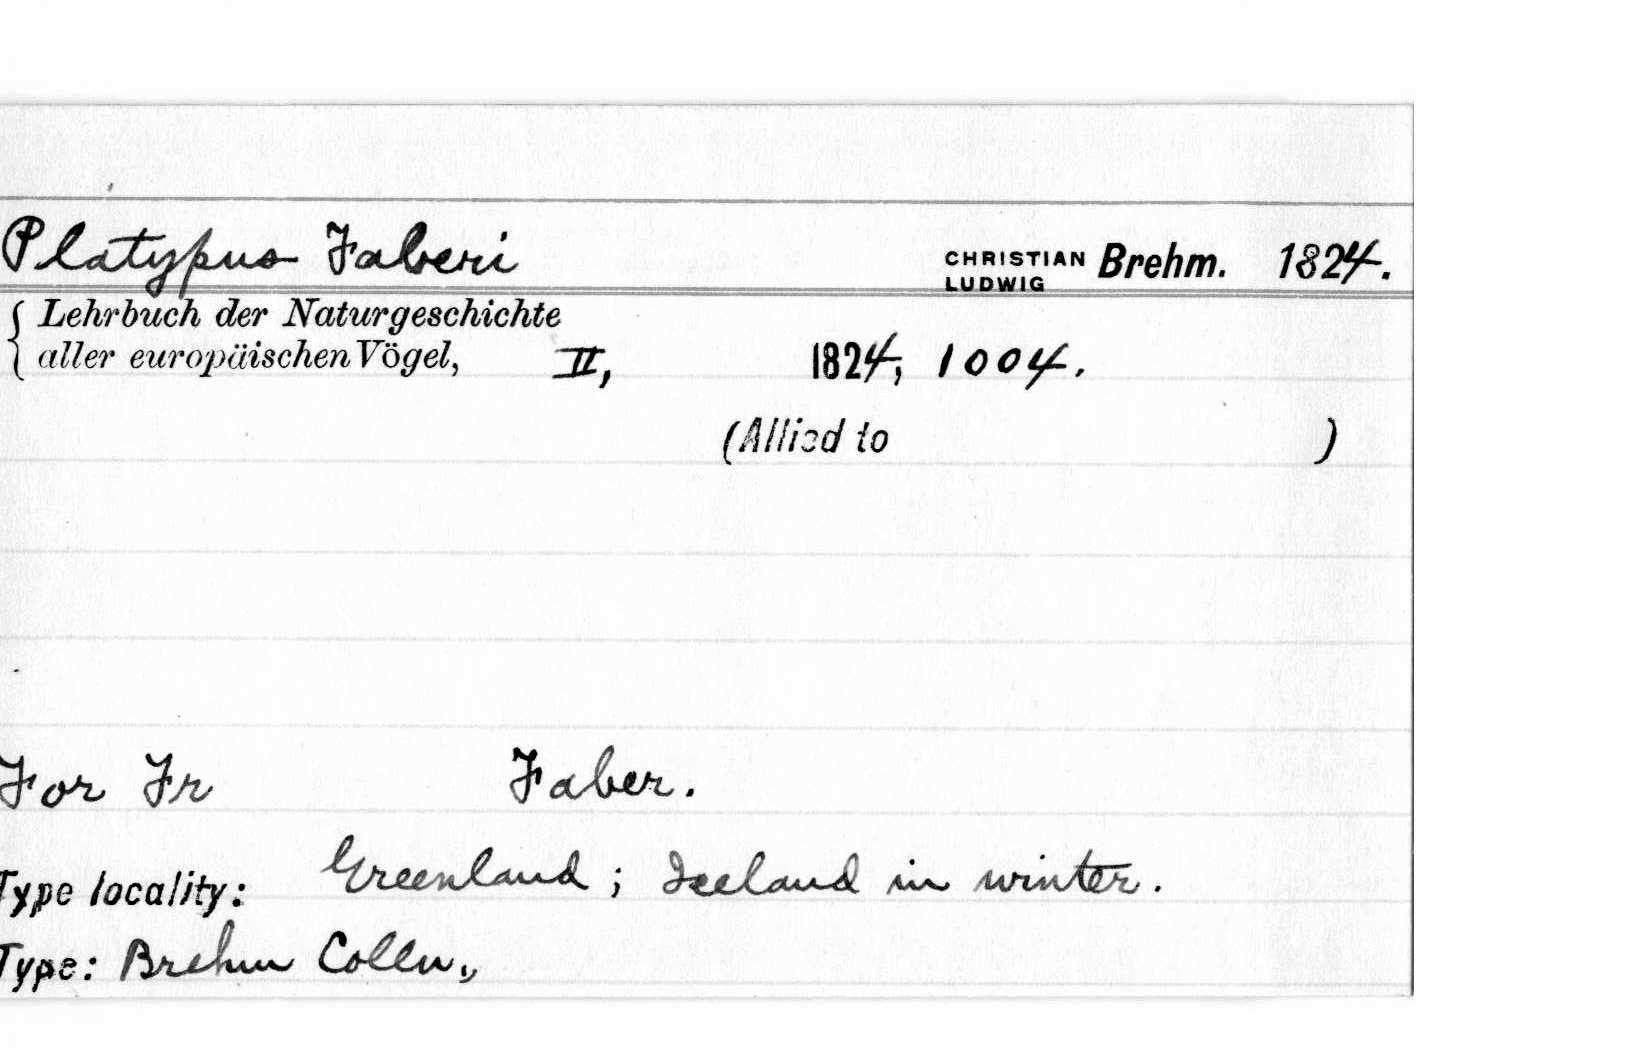 Platypus Faberi CHRISTIAN LUDWIG Brehm. 1824.
Lehrbuch der Naturgeschichte
aller europäischen Vögel, II, 1824, 1004.
(Allied to )
For Fr Faber.
Type locality: Greenland; Iceland in winter.
Type: Brehm Colln.,